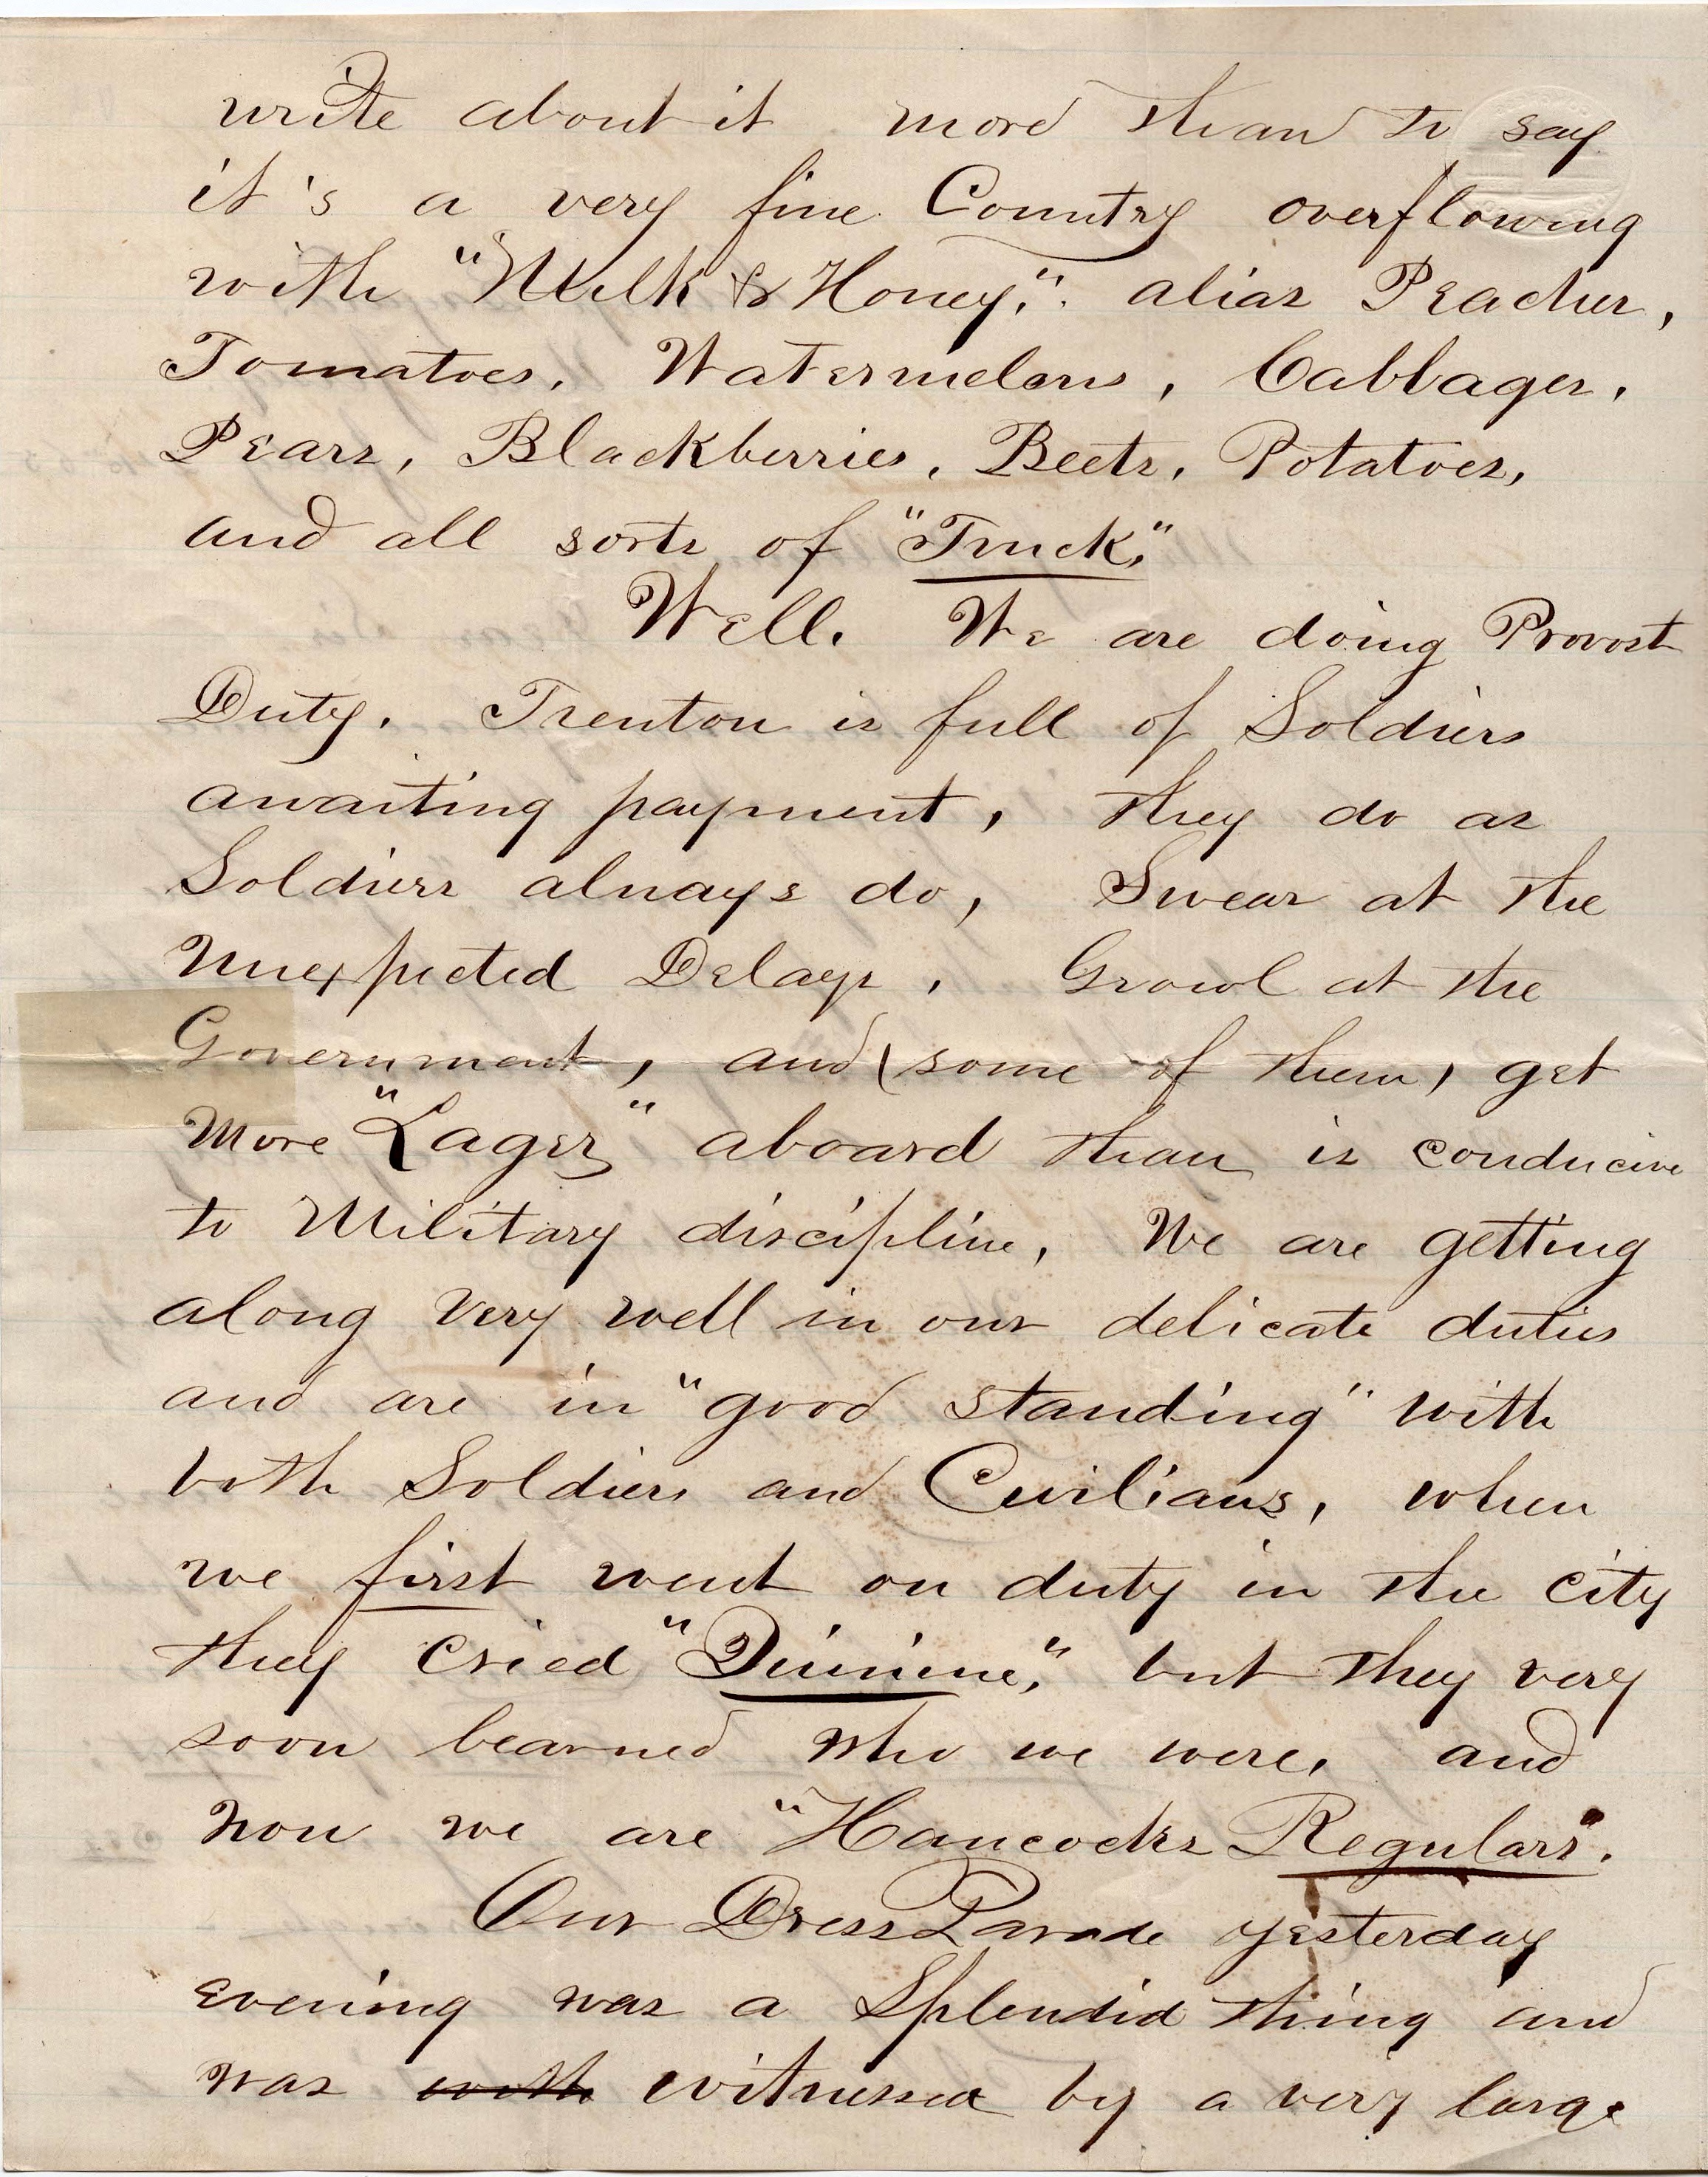 write about it more than to say
it's a very fine Country overflowing
with "Milk & Honey," alias Peaches,
Tomatoes, Watermelons, Cabbages,
Pears, Blackberries, Beets, Potatoes,
and all sorts of "Truck."
Well. We are doing Provost
Duty. Trenton is full of Soldiers
awaiting payment, they do as
Soldiers always do, Swear at the
Unexpected Delays, Growl at the
Government, and (some of them) get
more "Lager" aboard than is conducive
to Military discipline, We are getting
along very well in our delicate duties
and are in "good standing" with
both Soldiers and Civilians, when
we first went on duty in the city
they cried "Quinine," but they very
soon learned who we were, and
now we are "Hancocks Regulars".
Our Dress Parade yesterday
evening was a Splendid thing and
was with witnessed by a very large